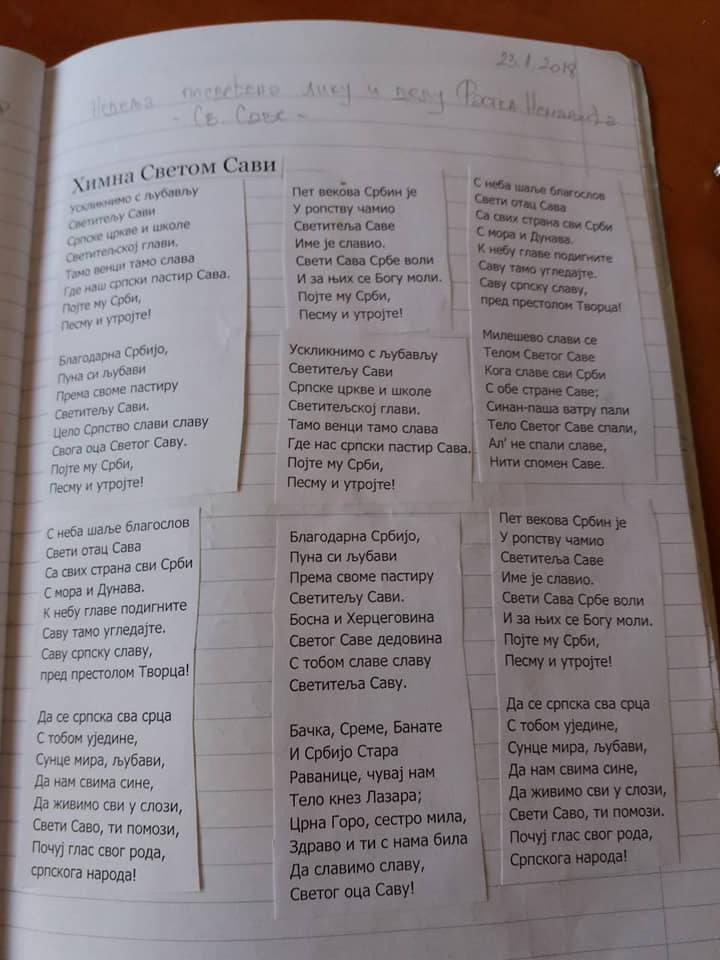 23.1.2018
Недеља посвећена лику и делу Растка Немањића
- Св. Саве -
Химна Светом Сави
Ускликнимо с љубављу
Светитељу Сави
Српске цркве и школе
Светитељској глави.
Тамо венци тамо слава
Где наш српски пастир Сава.
Појте му Срби,
Песму и утројте!
Благодарна Србијо,
Пуна си љубави
Према своме пастиру
Светитељу Сави.
Цело Српство слави славу
Свога оца Светог Саву.
Појте му Срби,
Песму и утројте!
С неба шаље благослов
Свети отац Сава
Са свих страна сви Срби
С мора и Дунава.
К небу главе подигните
Саву тамо угледајте.
Саву српску славу,
пред престолом Творца!
Да се српска сва срца
С тобом уједине,
Сунце мира, љубави,
Да нам свима сине,
Да живимо сви у слози,
Свети Саво, ти помози,
Почуј глас свог рода,
српскога народа!
Пет векова Србин је
У ропству чамио
Светитеља Саве
Име је славио.
Свети Сава Србе воли
И за њих се Богу моли.
Појте му Срби,
Песму и утројте!
Ускликнимо с љубављу
Светитељу Сави
Српске цркве и школе
Светитељској глави.
Тамо венци тамо слава
Где нас српски пастир Сава.
Појте му Срби,
Песму и утројте!
Благодарна Србијо,
Пуна си љубави
Према своме пастиру
Светитељу Сави.
Босна и Херцеговина
Светог Саве дедовина
С тобом славе славу
Светитеља Саву.
Бачка, Среме, Банате
И Србијо Стара
Раванице, чувај нам
Тело кнез Лазара;
Црна Горо, сестро мила,
Здраво и ти с нама била
Да славимо славу,
Светог оца Саву!
С неба шаље благослов
Свети отац Сава
Са свих страна сви Срби
С мора и Дунава.
К небу главе подигните
Саву тамо угледајте.
Саву српску славу,
пред престолом Творца!
Милешево слави се
Телом Светог Саве
Кога славе сви Срби
С обе стране Саве;
Синан-паша ватру пали
Тело Светог Саве спали,
Ал’ не спали славе,
Нити спомен Саве.
Пет векова Србин је
У ропству чамио
Светитеља Саве
Име је славио.
Свети Сава Србе воли
И за њих се Богу моли.
Појте му Срби,
Песму и утројте!
Да се српска сва срца
С тобом уједине,
Сунце мира, љубави,
Да нам свима сине,
Да живимо сви у слози,
Свети Саво, ти помози.
Почуј глас свог рода,
Српскога народа!